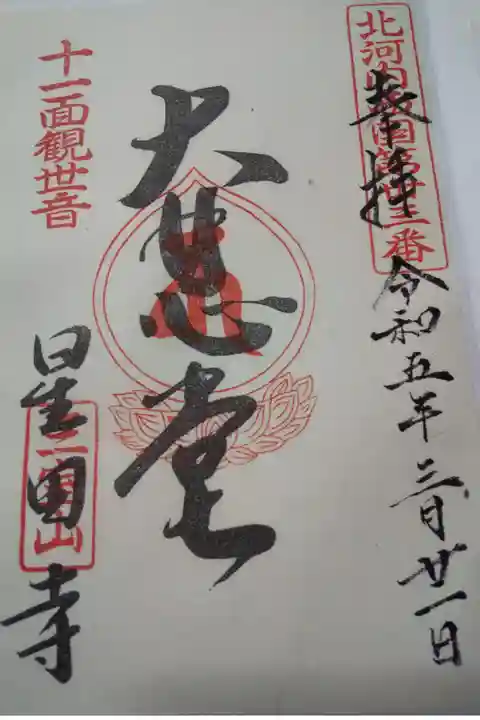 北河内西国第
番
奉拝 令和五年三月廿一日
大悲堂
十一面観世音
星田寺
山